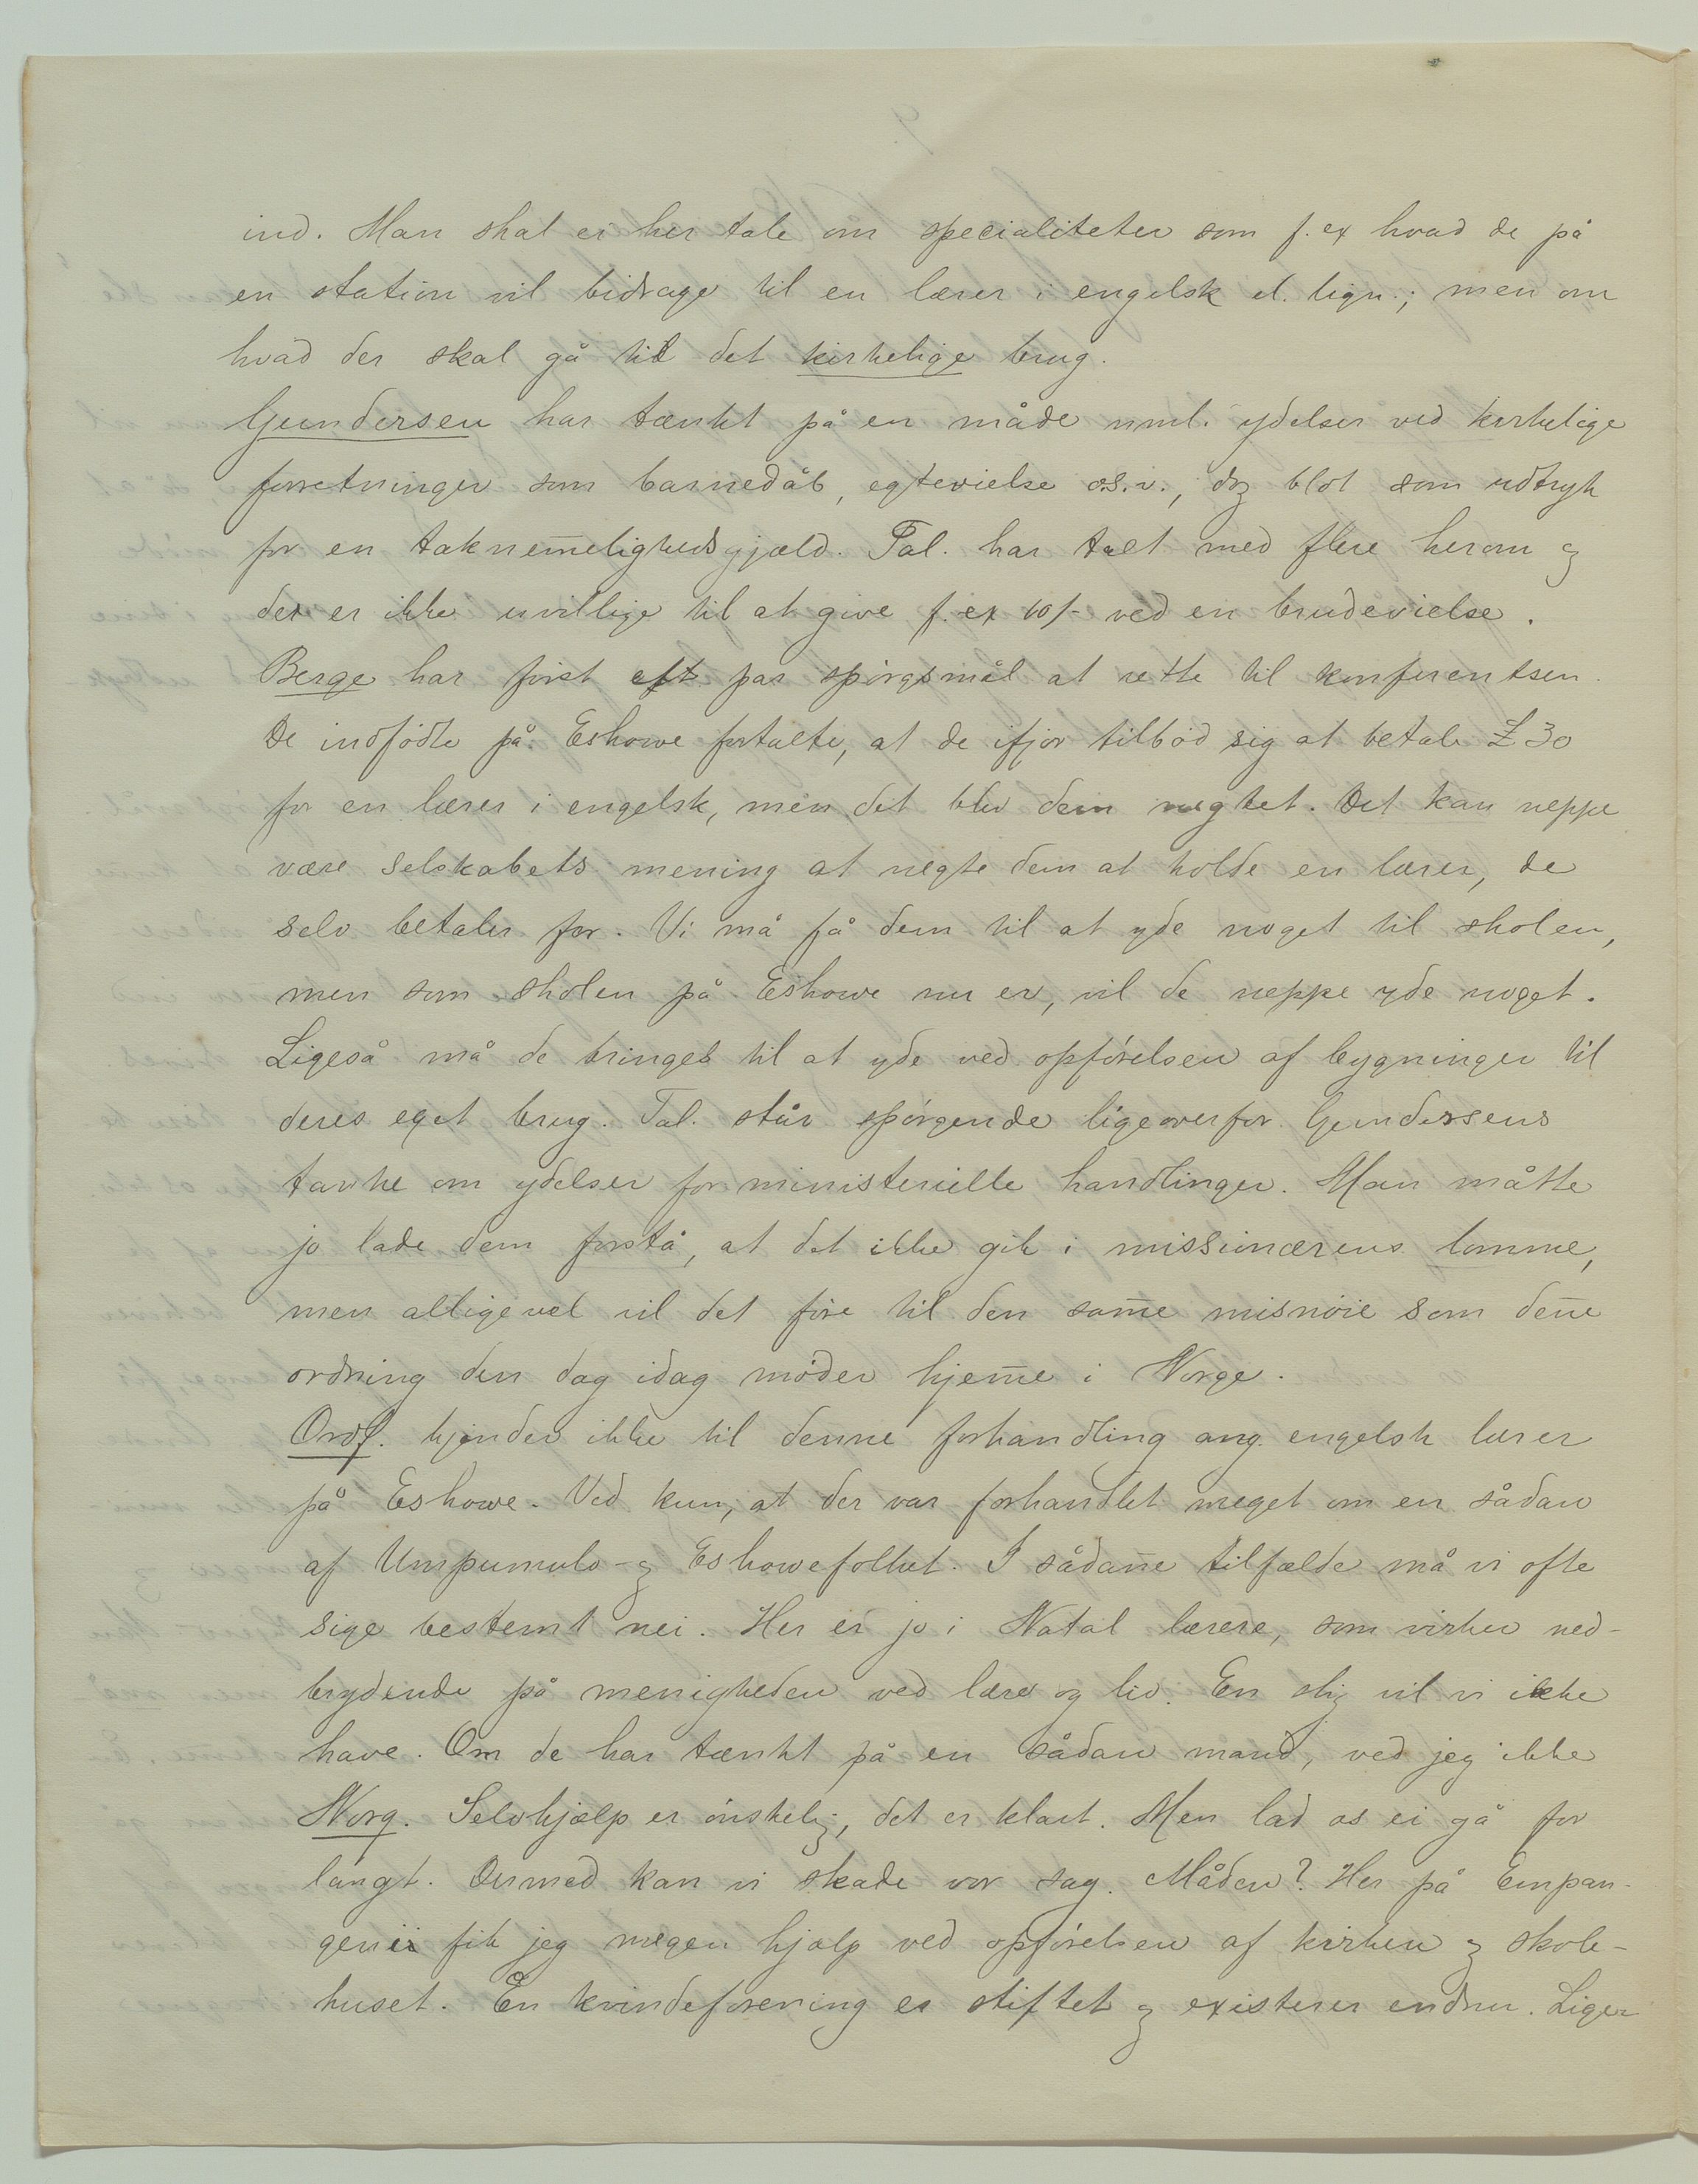 ind. Man skal ei her tale om specialiteter som f. ex hvad de på
en station vil bidrage til en lærer i engelsk el. lign.; men om
hvad der skal gå til det kirkelige brug.
Gundersen har tænkt på en måde nml. ydelser ved kirkelige
forretninger som barnedåb, egtevielse o.s.v., dog blot som udtryk
for en taknem̅elighedsgjæld. Tal. har talt med flere herom og
der er ikke uvillige til at give f. ex 10/- ved en brudevielse.
Berge har först et par spörgsmål at rette til konferentsen.
De indfödte på Eshowe fortalte, at de ifjor tilböd sig at betale £ 30
for en lærer i engelsk, men det blev dem nægtet. Det kan neppe
være selskabets mening at negte dem at holde en lærer, de
selv betaler for. Vi må få dem til at yde noget til skolen,
men som skolen på Eshowe nu er, vil de neppe yde noget.
Ligeså må de bringes til at yde ved opförelsen af bygninger til
deres eget brug. Tal. står spörgende ligeoverfor Gundersens
tanke om ydelser for ministerielle handlinger. Man måtte
jo lade dem forstå, at det ikke gik i missionærens lomme,
men alligevel vil det före til den sam̅e misnöie som den̅e
ordning den dag idag möder hjem̅e i Norge.
Ordf. kjender ikke til denne forhandling ang. engelsk lærer
på Eshowe. Ved kun, at der var forhandlet meget om en sådan
af Umpumulo- og Eshowefolket. I sådan̅e tilfælde må vi ofte
sige bestemt nei. Her er jo i Natal lærere, som virker ned-
brydende på menigheden ved lære og liv. En slig vil vi ikke
have. Om de har tænkt på en sådan mand, ved jeg ikke
Norg. Selvhjælp er önskelig, det er klart. Men lad os ei gå for
langt. Dermed kan vi skade vor sag. Måden? Her på Empan-
geni fik jeg megen hjælp ved opförelsen af kirken og skole-
huset. En kvindeforening er stiftet og existerer endnu. Liger